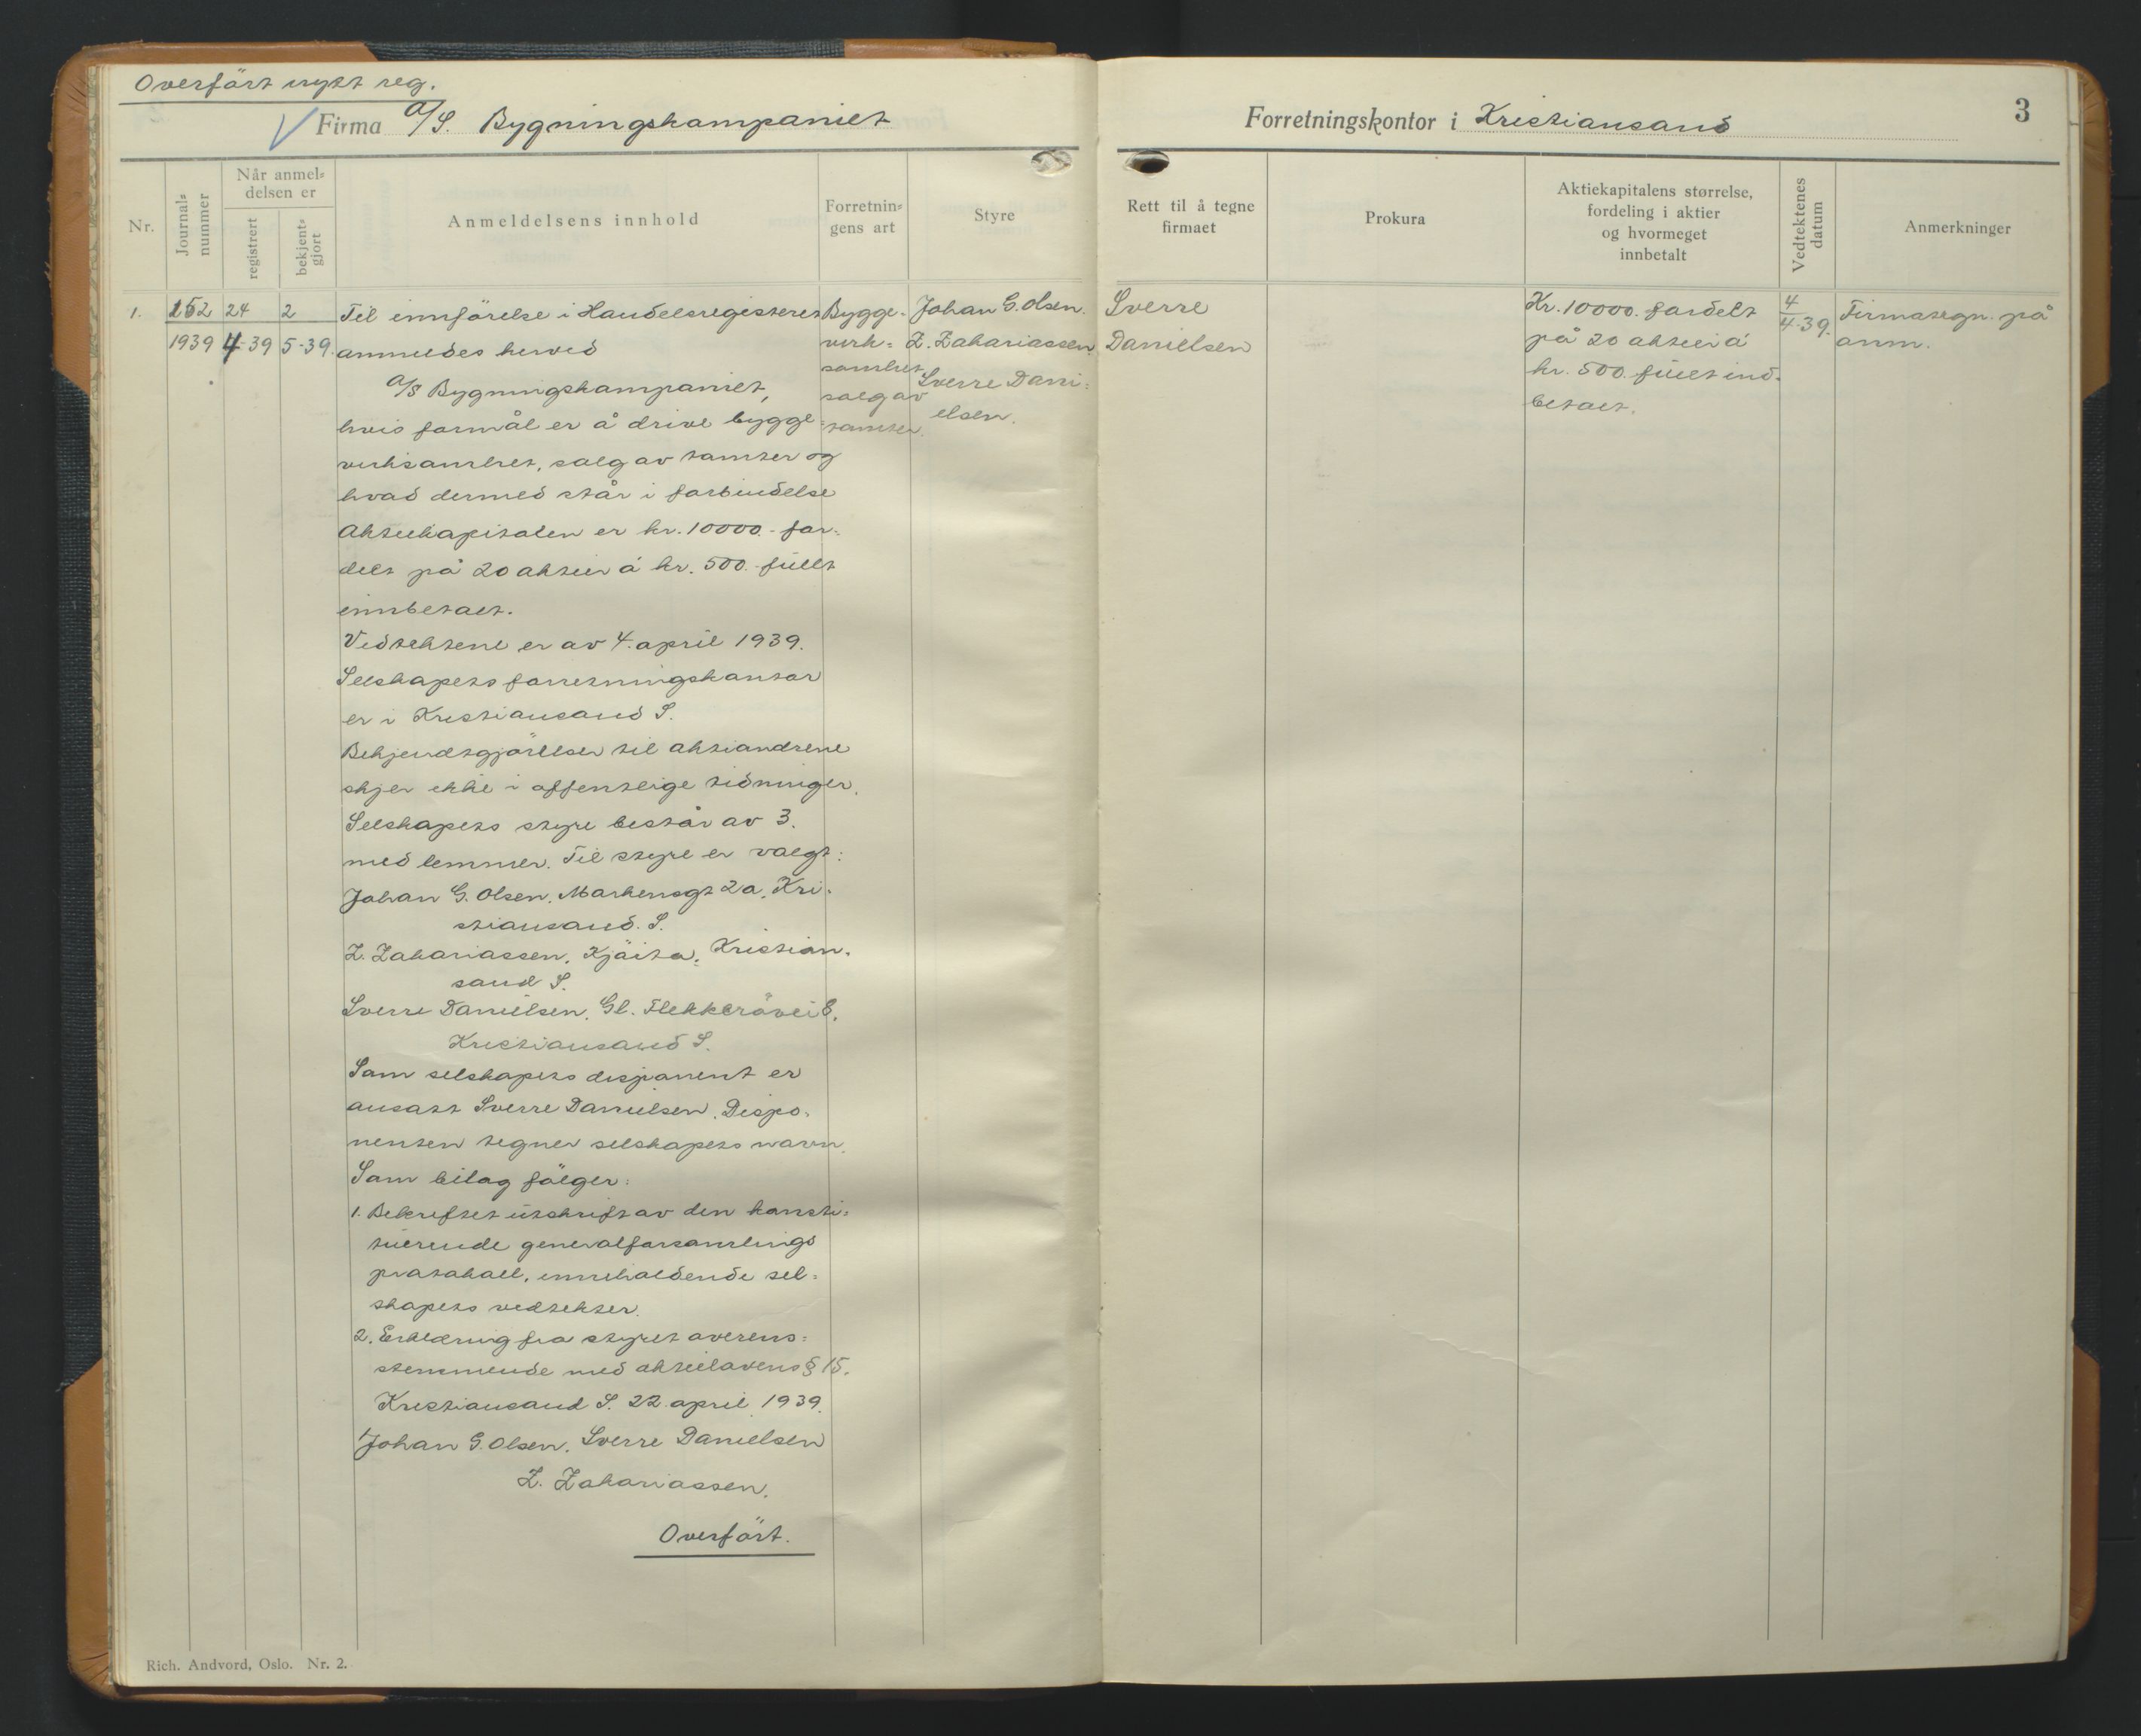 Overført nytt reg.
Firma A/S. Bygningskompaniet
Forretningskontor i Kristiansand
3
Nr.
Journal=
nummer
Når anmel=
delsen er
registrert
bekjent=
gjort
Anmeldelsens innhold
Forretnin=
gens art
Styre
Rett til å tegne
firmaet
Prokura
Aktiekapitalens størrelse,
fordeling i aktier
og hvormeget
innbetalt
Vedtektenes
datum
Anmerkninger
1.
152
1939
24
4-39
2
5-39.
Til innførelse i Handelsregisteret
anmeldes herved
A/S Bygningskompaniet,
hvis formål er å drive bygge=
virksomhet, salg av tomter og
hvad dermed står i forbindelse
Aktiekapitalen er kr. 10000.- for-
delt på 20 aktier á kr. 500.- fullt
innbetalt.
Vedtektene er av 4. april 1939.
Selskapets forretningskontor
er i Kristiansand S.
Bekjendtgjørelser til aktionærene
skjer ikke i offentlige tidninger.
Selskapets styre består av 3.
medlemmer. Til styre er valgt:
Johan G. Olsen, Markensgt 2a, Kri-
stiansand. S.
Z. Zakariassen, Kjøita, Kristian-
sand S.
Sverre Danielsen, Gl. Flekkerøvei 8,
Kristiansand S.
Som selskapets disponent er
ansatt Sverre Danielsen. Dispo-
nenten tegner selskapets navn.
Som bilag følger:
1. Bekreftet utskrift av den konsti=
tuerende generalforsamlings
protokoll, inneholdende sel-
skapets vedtekter.
2. Erklæring fra styret overens=
stemmende med aktielovens § 15.
Kristiansand S. 22. april 1939.
Johan G. Olsen. Sverre Danielsen
Z. Zakariassen.
Overført.
Bygge-
virk=
somhet
salg av
tomter.
Johan G. Olsen.
Z. Zakariassen
Sverre Dani=
elsen.
Sverre
Danielsen
Kr. 10000. fordelt
på 20 aktier á
kr. 500. fullt ind-
betalt.
4
4-39.
Firmategn. på
anm.
Rich. Andvord, Oslo. Nr. 2.